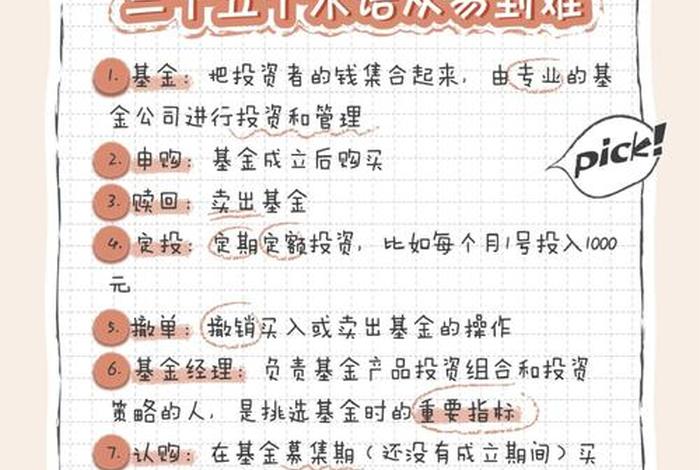 二十五个术语从易到难
1. 基金：把投资者的钱集合起来，由专业的基
金公司进行投资和管理
2. 申购：基金成立后购买
pick!
3. 赎回：卖出基金
4. 定投：定期定额投资，比如每个月1号投入1000
元
5. 撤单：撤销买入或卖出基金的操作
6. 基金经理：负责基金产品投资组合和投资
策略的人，是挑选基金时的重要指标
7. 认购：在基金募集期（还没有成立期间）买